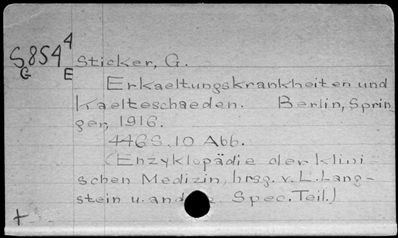 S854⁴ Sticker, G.
G E
Erkaeltungskrankheiten und
Kaelteschaeden. Berlin, Sprin
ger, 1916.
446S. 10 Abb.
(Enzyklopädie der klini=
schen Medizin, hrsg. v. L. Lang=
stein u. and Spec. Teil.)
+